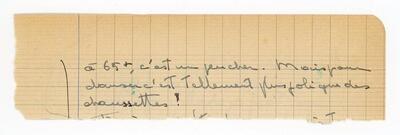 à 65 f, c'est un peu cher. Mais pour
danser c'est tellement plus joli que des
chaussettes !